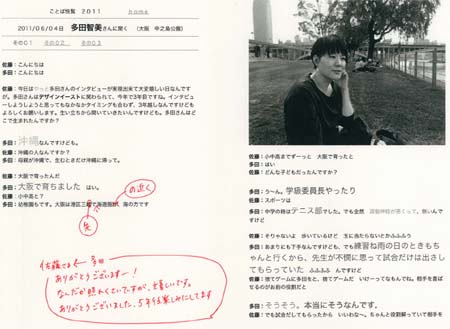 ことば悦覧 2011 home
2011/06/04日 多田智美さんに聞く （大阪 中之島公園）
その01 その02 その03
佐藤：こんにちは
多田：こんにちは
佐藤：今日はやっと多田さんのインタビューが実現出来て大変嬉しい日なんです
が。多田さんはデザインイーストに関わられて、今年で3年目ですね。インタビ
ューしようしようと思ってもなかなかタイミングも合わず、3年越しなんですけども
よろしくお願いします。生い立ちから聞いていきたいんですけども。多田さんはど
こで生まれたんですか？
多田：沖縄なんですけども。
佐藤：沖縄の人なんですか？
多田：母親が沖縄で、生むときだけ沖縄に帰って。
佐藤：大阪で育ったんだ
多田：大阪で育ちました はい。
佐藤：小中高と？
多田：幼稚園もです。大阪は港区
海の方です
の近く
佐藤さま ← 多田
ありがとうございますー！
なんだか照れくさいですが、嬉しいです。
ありがとうございました。5年後楽しみにしてます
佐藤：小中高までずーっと 大阪で育ったと
多田：はい
佐藤：どんな子どもだったんですか？
多田：う〜ん。学級委員長やったり
佐藤：スポーツは
多田：中学の時はテニス部でした。でも全然 運動神経が悪くって。無いんで
すけど
佐藤：そりゃないよ 歩いているけど 玉に当たらないとかふふふう
多田：あまりにも下手なんですけども、でも練習ね雨の日のときももち
ゃんと行くから、先生が不憫に思って試合だけは出さし
てもらっていた ふふふふ んですけど
佐藤：捨てゲームに多田をと、捨てゲームだ いけーってなもんでね。相手を喜ば
せるのがお前の役割だと
多田：そうそう。本当にそうなんです。
佐藤：でも試合だしてもらったから いいわな〜。ちゃんと役割解っていて相手を